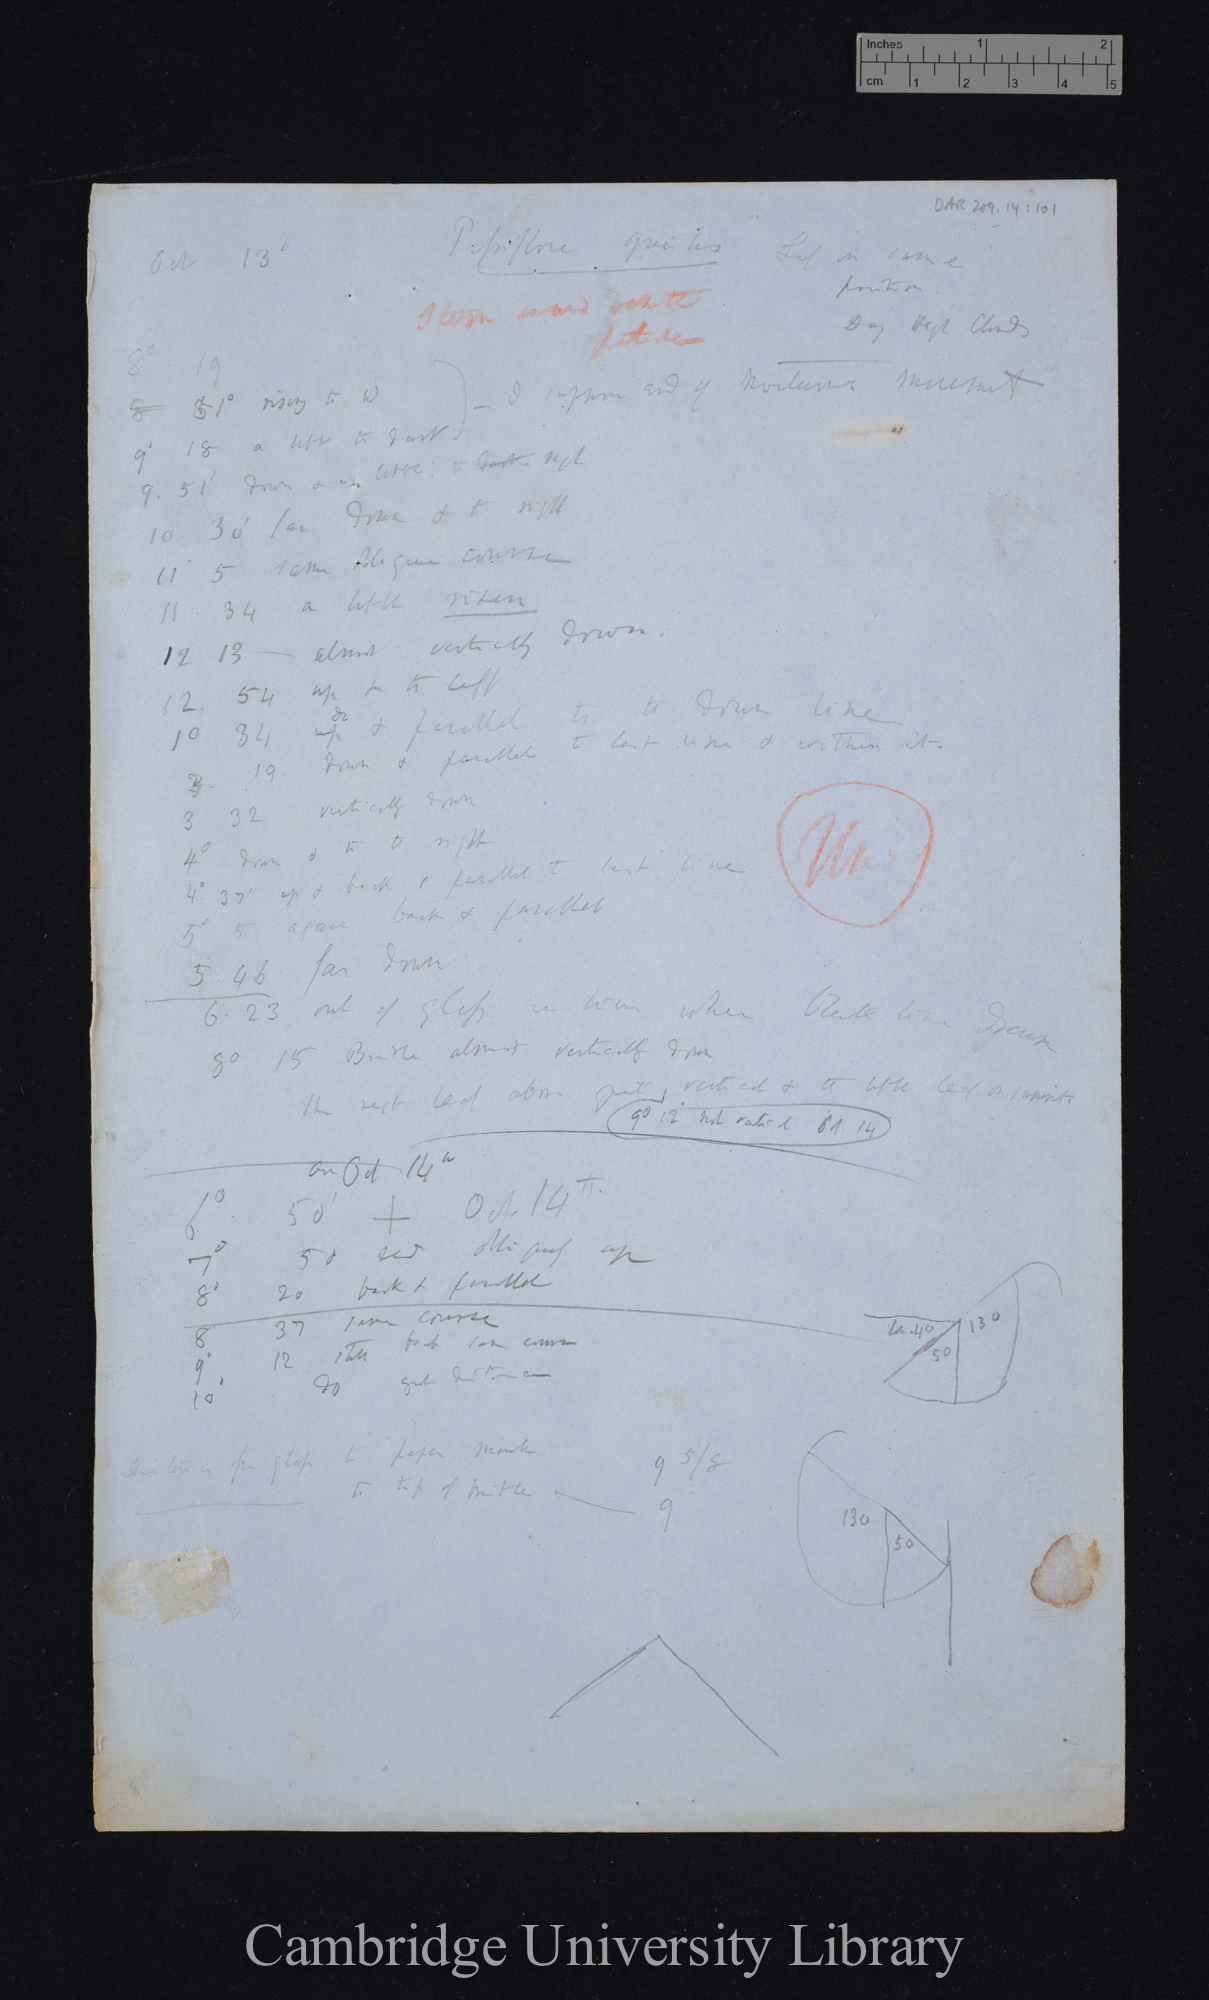 Inches 1 2
cm 1 2 3 4 5
DAR 209.14:101
Oct 13'
Passiflora gracilis
Leaf in same
position.
Day High Clouds
Stem secured
petiole
8° 19
8 31° rising to W
I suppose end of nocturnal movement
9' 18 a little to dark
9. 51' down & a little to dark right
10 30' far down & to right
11' 5 same oblique course
11 34 a little risen
12 13 — almost vertically down.
12. 54 up & to left
1° 34 up do & parallel to down line
19. down & parallel to last line & within it.
3 32 vertically down
Used
4° down & to right
4° 37' up & back & parallel to last line
5° 5 again back & parallel
5 46 far down
6. 23 out of glass when line drawn
8° 15 Bristle almost vertically down
The next leaf above quite vertical & little leaf on summit
9° 12' not vertical Oct. 14
on Oct 14th
6° 50' + Oct. 14th
7° 50 obliquely up
8° 20 back & parallel
8 37 same course
9° 12 still back same course
10° do great distance
40 130
50
Distance from glass to paper mark 9 5/8
to tip of bristle — 9
130
50
Cambridge University Library